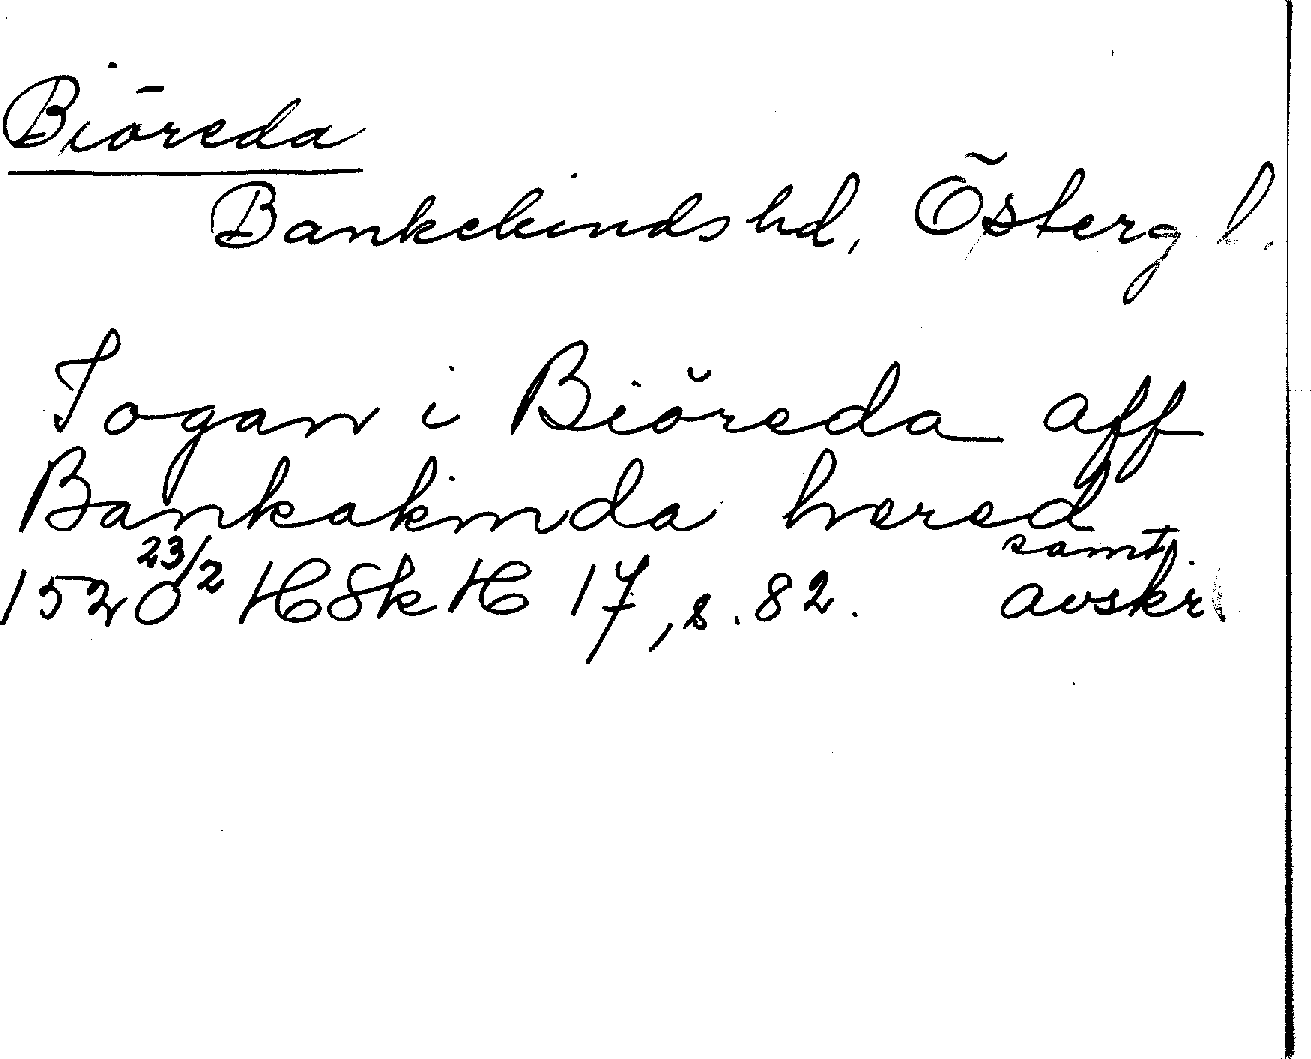 Biöreda
Bankekinds hd, Österg l.
Togan i Biöreda aff
Bankakinda hered
samt.
1520 23/2 HSkH 17, s. 82. avskr